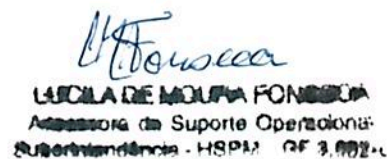 Fonseca
LUCILA DE MOURA FONSECA
Assessora de Suporte Operacional
Superintendência - HSPM